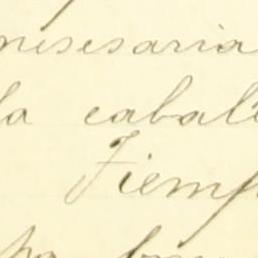 nesesaria
la cabal
Tiemp